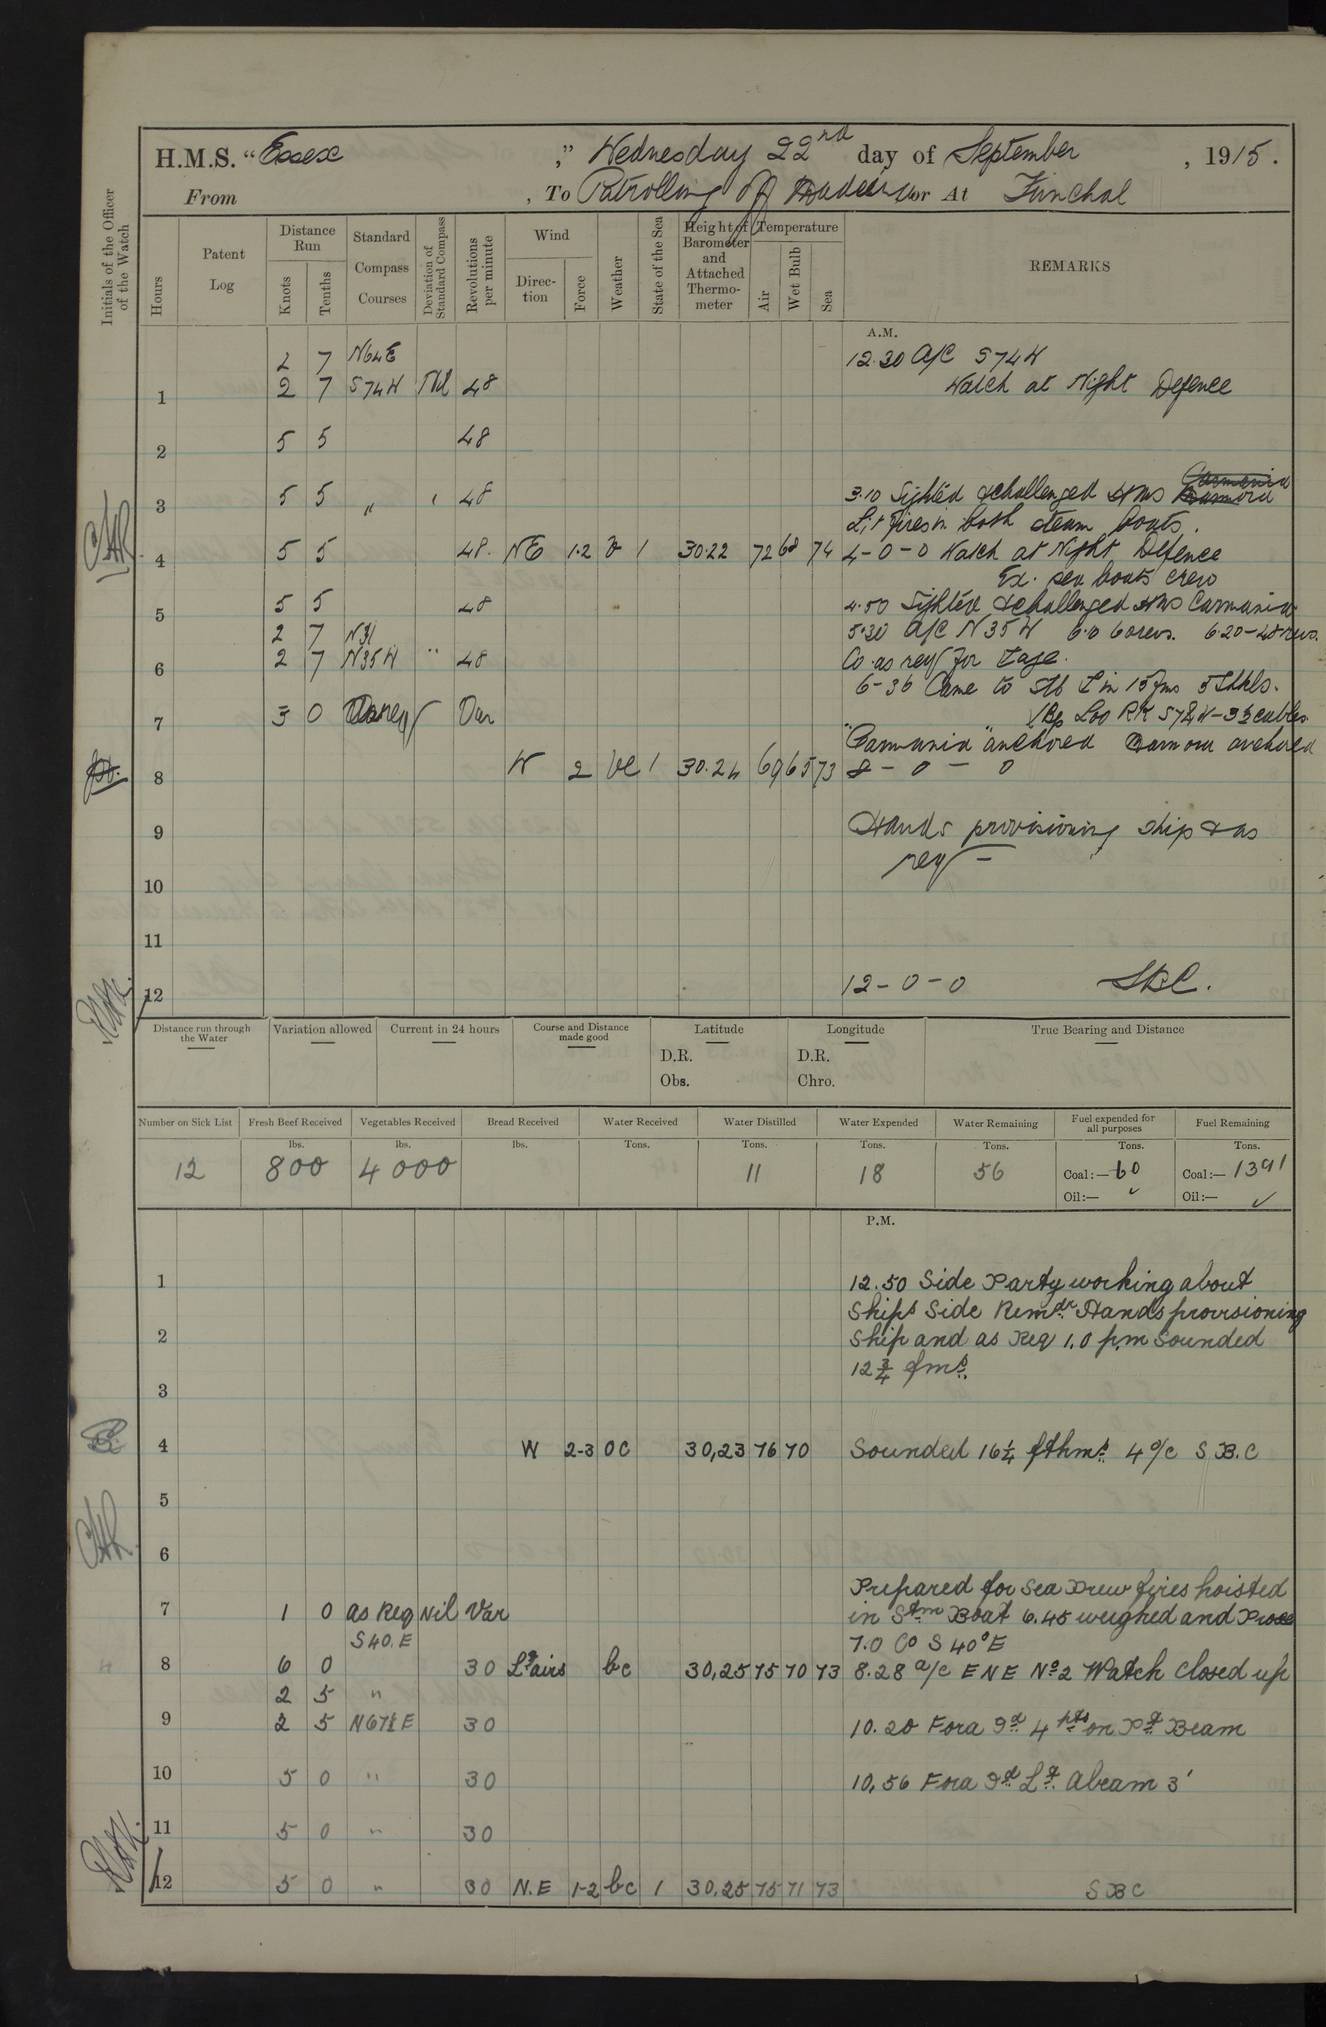 H.M.S. "Essex ," Wednesday 22nd day of September , 1915.
From , To Patrolling off Madeira or At Funchal
Initials of the Officer of the Watch
Hours
Patent Log
Distance Run
Knots
Tenths
Standard Compass Courses
Deviation of Standard Compass
Revolutions per minute
Wind
Direction
Force
Weather
State of the Sea
Height of Barometer and Attached Thermometer
Temperature
Air
Wet Bulb
Sea
REMARKS
A.M.
2 7 N64E 12.30 A/C S74W
1 2 7 S74W Nil 48 Watch at Night Defence
2 5 5 48
3 5 5 " ' 48 3.10 Sighted & challenged HMS
Lit fires in both steam boats.
4 5 5 48. NE 1.2 b 1 30.22 72 68 74 4-0-0 Watch at Night Defence
Ex. sea boats crew
5 5 5 48 4.50 Sighted & challenged HMS Carmania
2 7 5.30 A/C N35W 6.0 60revs. 6.20-48revs.
6 2 7 N35W " 48 Co. as req for
6-36 Came to Stb in 15 fms 5 Shkls.
7 3 0 as req Var Loo Rk
"Carmania" anchored anchored
8 W 2 bc 1 30.24 69 65 73 8 - 0 - 0
9 Hands provisioning ship & as
req -
10
11
12 12-0-0 SBC.
Distance run through the Water
Variation allowed
Current in 24 hours
Course and Distance made good
Latitude
D.R.
Obs.
Longitude
D.R.
Chro.
True Bearing and Distance
Number on Sick List Fresh Beef Received Vegetables Received Bread Received Water Received Water Distilled Water Expended Water Remaining Fuel expended for all purposes Fuel Remaining
lbs. lbs. lbs. Tons. Tons. Tons. Tons. Tons. Tons.
12 800 4000 11 18 56 Coal:— 60 Coal:— 1391
Oil:— ✓ Oil:— ✓
P.M.
1 12.50 Side Party working about
Ships Side Remdr Hands provisioning
2 Ship and as Req 1.0 p.m Sounded
12 3/4 fms.
3
4 W 2-3 oc 30,23 76 70 Sounded 16 1/4 fthms. 4 o/c S B.C
5
6
Prepared for Sea Drew fires hoisted
7 1 0 as Req Nil Var in Stm Boat 6.45 weighed and Proc
S40.E 7.0 Co S 40° E
8 6 0 30 Lt airs bc 30,25 75 70 73 8.28 a/c E N E No 2 Watch closed up
2 5 "
9 2 5 N67½E 30 10.20 Fora Id 4 pts on Pt Beam
10 5 0 " 30 10,56 Fora Id Lt. Abeam 3'
11 5 0 " 30
12 5 0 " 30 N.E 1-2 bc 1 30,25 75 71 73 SBC